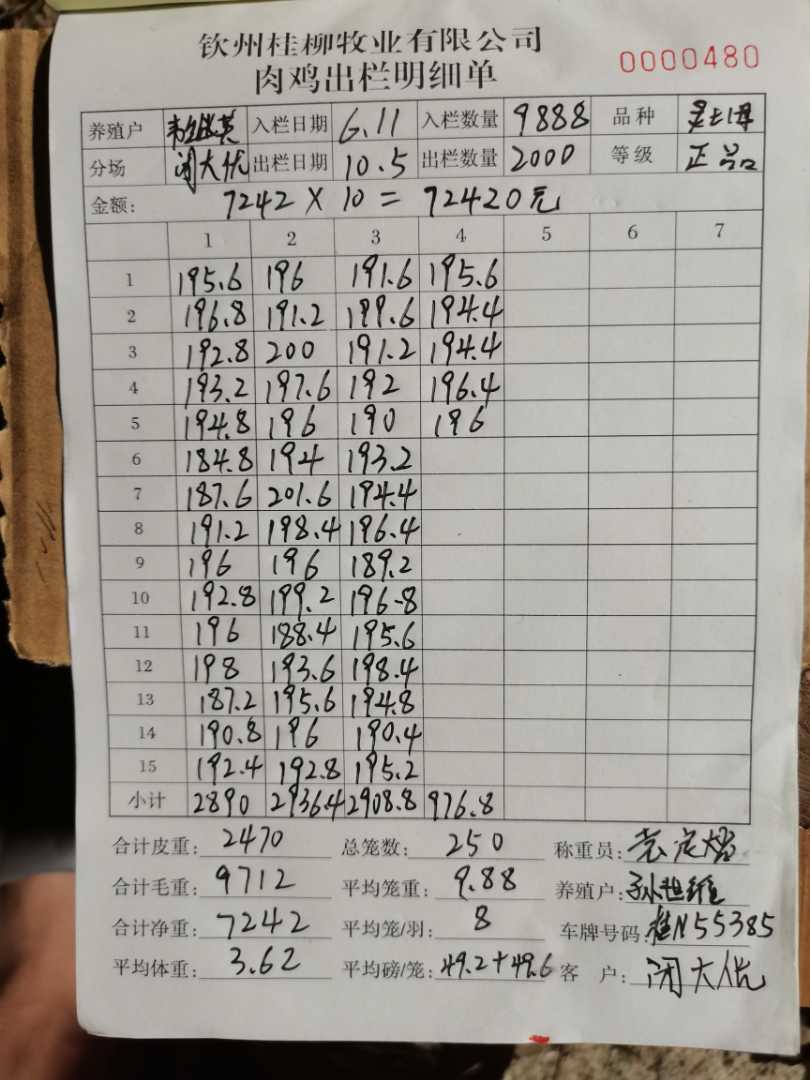 钦州桂柳牧业有限公司
肉鸡出栏明细单
0000480
养殖户 入栏日期 6.11 入栏数量 9888 品种 灵土母
分场 闭大优 出栏日期 10.5 出栏数量 2000 等级 正品
金额: 7242 X 10 = 72420元
1 2 3 4 5 6 7
1 195.6 196 191.6 195.6
2 196.8 191.2 199.6 194.4
3 192.8 200 191.2 194.4
4 193.2 197.6 192 196.4
5 194.8 196 190 196
6 184.8 194 193.2
7 187.6 201.6 194.4
8 191.2 198.4 196.4
9 196 196 189.2
10 192.8 199.2 196-8
11 196 188.4 195.6
12 198 193.6 198.4
13 187.2 195.6 194.8
14 190.8 196 190.4
15 192.4 192.8 195.2
小计 2890 2936.4 2908.8 976.8
合计皮重: 2470 总笼数: 250 称重员:
合计毛重: 9712 平均笼重: 9.88 养殖户: 孙世维
合计净重: 7242 平均笼/羽: 8 车牌号码: 桂N55385
平均体重: 3.62 平均磅/笼: 49.2+49.6 客 户: 闭大优